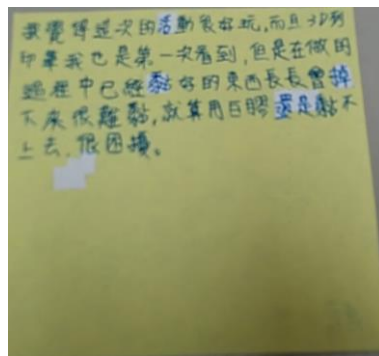 我覺得這次的活動很好玩,而且3D列
印筆我也是第一次看到,但是在做的
過程中已經黏好的東西長長會掉
下來很難黏,就算用白膠還是黏不
上去,很困擾。